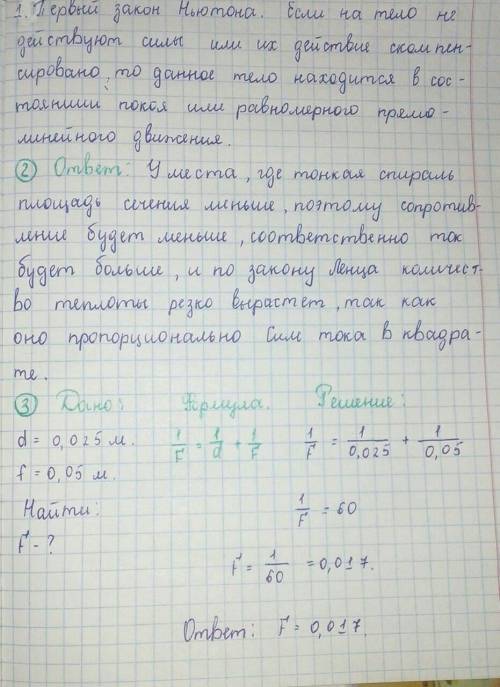 1. Первый закон Ньютона. Если на тело не
действуют силы или их действие скомпен-
сировано, то данное тело находится в сос-
тоянии покоя или равномерного прямо-
линейного движения.
2 Ответ: У места, где тонкая спираль
площадь сечения меньше, поэтому сопротив-
ление будет меньше, соответственно ток
будет больше, и по закону Ленца количест-
во теплоты резко вырастет, так как
оно пропорционально Силе тока в квадра-
те.
3 Дано: Формула. Решение:
d = 0,025 м. 1/F = 1/d + 1/F 1/F = 1/0,025 + 1/0,05
f = 0,05 м.
Найти: 1/F = 60
F - ?
F = 1/60 = 0,017.
Ответ: F = 0,017.